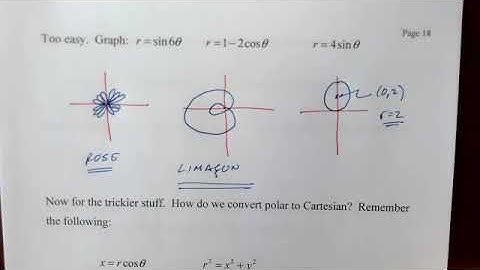 Page 18
Too easy. Graph: r = sin6θ r = 1−2cosθ r = 4sinθ
(0,2)
r=2
ROSE
LIMAÇON
Now for the trickier stuff. How do we convert polar to Cartesian? Remember
the following:
x = r cosθ r² = x² + y²